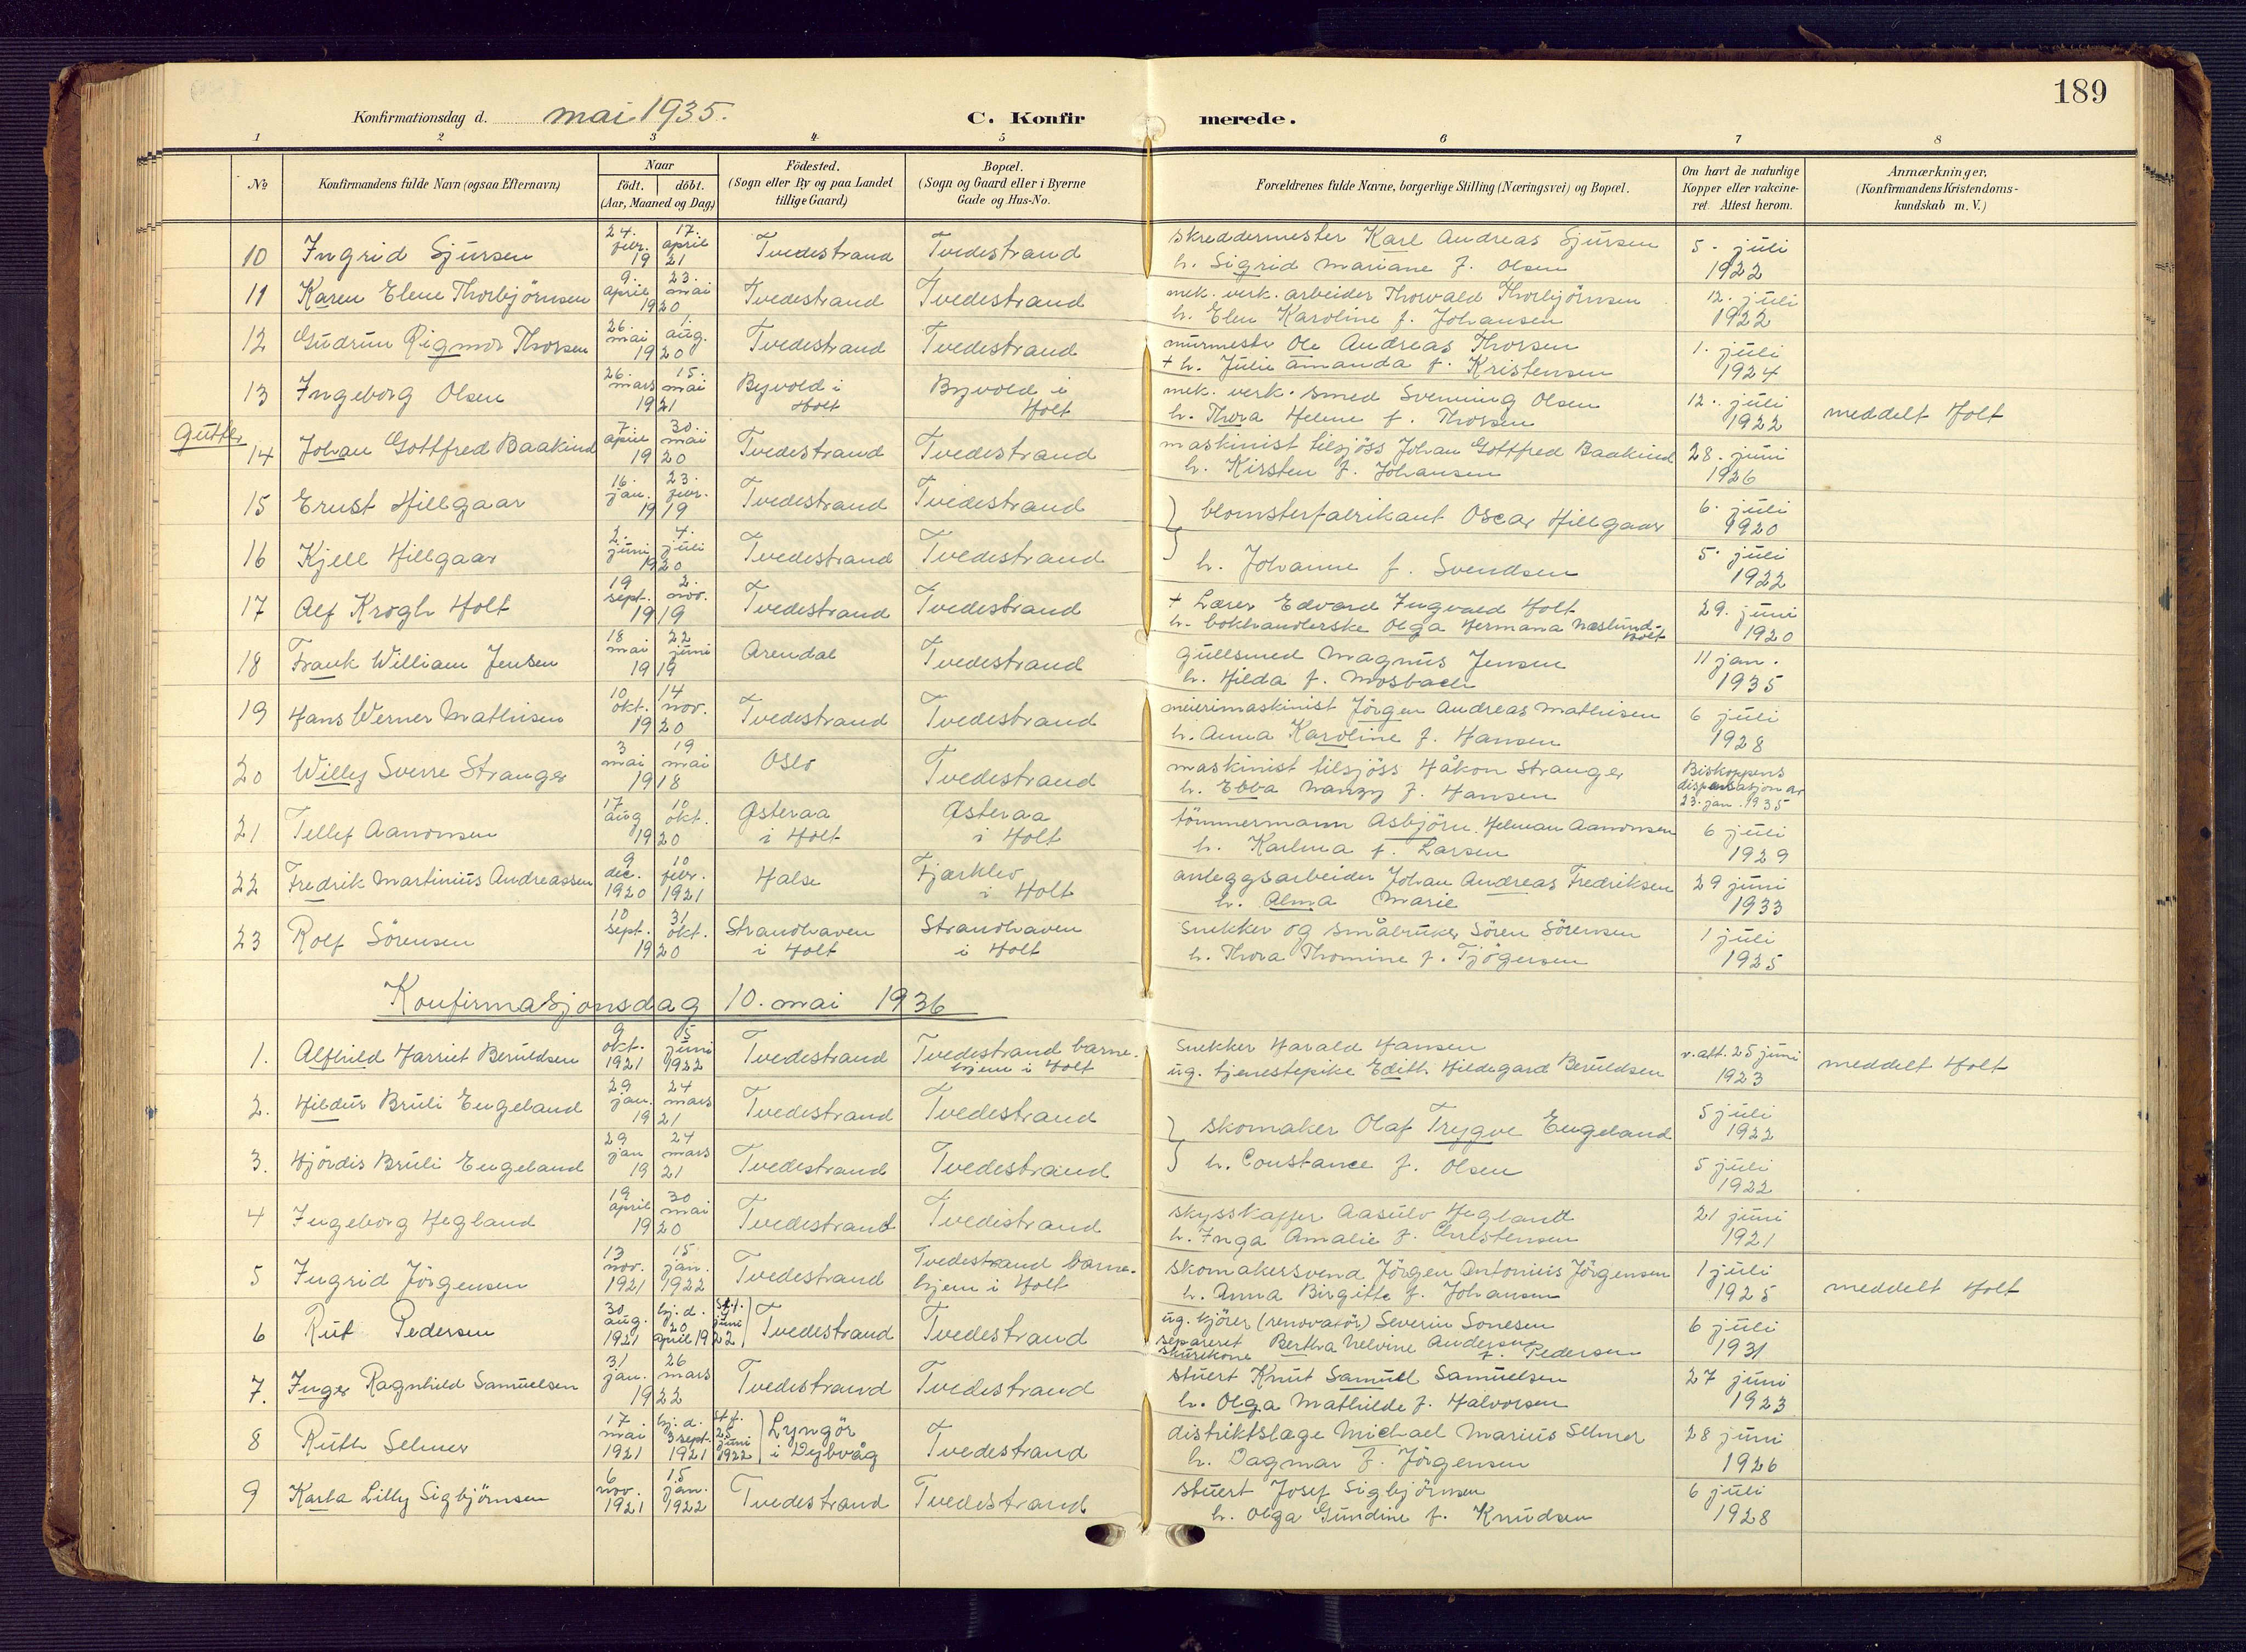 189
Konfirmationsdag d. mai 1935.
C. Konfirmerede.
1 2 3 4 5 6 7 8
№
Konfirmandens fulde Navn (ogsaa Efternavn)
Naar
födt. döbt.
(Aar, Maaned og Dag)
Födested.
(Sogn eller By og paa Landet
tillige Gaard)
Bopæl.
(Sogn og Gaard eller i Byerne
Gade og Hus-No.
Forældrenes fulde Navne, borgerlige Stilling (Næringsvei) og Bopæl.
Om havt de naturlige
Kopper eller vakcine-
ret. Attest herom.
Anmærkninger,
(Konfirmandens Kristendoms-
kundskab m. V.)
10 Ingrid Sjursen 24. febr. 17. april 1921 Tvedestrand Tvedestrand skreddermester Karl Andreas Sjursen 5. juli
h. Sigrid Mariane f. Olsen 1922
11 Karen Elene Thorbjörnsen 9. april 23. mai 1920 Tvedestrand Tvedestrand mek. verk. arbeider Thorvald Thorbjörnsen 12. juli
h. Elen Karoline f. Johansen 1922
12 Gudrun Rigmor Thorsen 26. mai 1. aug. 1920 Tvedestrand Tvedestrand murmestr Ole Andreas Thorsen 1. juli
+ h. Julie Amanda f. Kristensen 1924
13 Ingeborg Olsen 26. mars 15. mai 1921 Byvold i Holt Byvold i Holt mek. verk. smed Svenning Olsen 12. juli
h. Thora Helene f. Thorsen 1922 meddelt Holt
Gutter
14 Johan Gottfred Baakind 7. april 30. mai 1920 Tvedestrand Tvedestrand maskinist tilsjöss Johan Gottfred Baakind 28. juni
h. Kirsten f. Johansen 1926
15 Ernst Hillgaar 16. jan. 23. febr. 1919 Tvedestrand Tvedestrand blomsterfabrikant Oscar Hillgaar 6. juli 1920
16 Kjell Hillgaar 2. juni 4. juli 1920 Tvedestrand Tvedestrand h. Johanne f. Svendsen 5. juli 1922
17 Alf Krogh Holt 19 sept. 2. nov. 1919 Tvedestrand Tvedestrand + Lærer Edvard Ingvald Holt 29. juni
h. bokhandlerske Olga Hermana Næslund-Holt 1920
18 Frank William Jensen 18 mai 22 juni 1919 Arendal Tvedestrand gullsmed Magnus Jensen 11 jan.
h. Hilda f. Mosbach 1935
19 Hans Werner Mathisen 10 okt. 14 nov. 1920 Tvedestrand Tvedestrand meierimaskinist Jörgen Andreas Mathisen 6 juli
h. Anna Karoline f. Hansen 1928
20 Willy Sverre Stranger 3 mai 19 mai 1918 Oslo Tvedestrand maskinist tilsjöss Håkon Stranger Biskoppens
h. Ebba Nanzy f. Hansen dispensasjon av 23. jan. 1935
21 Tellef Aanonsen 17 aug 10 okt. 1920 Østeraa i Holt Østeraa i Holt tömmermann Asbjörn Helman Aanonsen 6 juli
h. Karlma f. Larsen 1929
22 Fredrik Martinius Andreassen 9 dec. 1920 10 febr. 1921 Halse Fjærklev i Holt anleggsarbeider Johan Andreas Fredriksen 29 juni
h. Alma Marie 1933
23 Rolf Sörensen 10 sept. 31 okt. 1920 Strandhaven i Holt Strandhaven i Holt snekker og småbruker Sören Sörensen 1 juli
h. Thora Thomine f. Tjögersen 1925
Konfirmasjonsdag 10. mai 1936
1. Alfhild Harriet Beruldsen 9 okt. 1921 5 juni 1922 Tvedestrand Tvedestrand barnehjem i Holt snekker Harald Hansen v. att. 25 juni
ug. tjenestepike Edith Hildegard Beruldsen 1923 meddelt Holt
2. Hildur Bruli Engeland 29 jan. 24 mars 1921 Tvedestrand Tvedestrand skomaker Olaf Trygve Engeland 5 juli 1922
3. Hjördis Bruli Engeland 29 jan 24 mars 1921 Tvedestrand Tvedestrand h. Constance f. Olsen 5 juli 1922
4 Ingeborg Hegland 19 april 30 mai 1920 Tvedestrand Tvedestrand skysskaffer Aasulv Hegland 21 juni
h. Inga Amalie f. Christensen 1921
5 Ingrid Jörgensen 13 nov. 1921 15 jan. 1922 Tvedestrand Tvedestrand barnehjem i Holt skomakersvend Jörgen Antonius Jörgensen 1 juli
h. Anna Birgitte f. Johansen 1925 meddelt Holt
6 Rut Pedersen 30 aug. 1921 hj. d. 20 april 1922 st. f. juni Tvedestrand Tvedestrand ug. kjörer (renovatör) Severin Sonesen 6 juli
separeret skurekone Bertha Nelvine Andersen f. Pedersen 1931
7. Inger Ragnhild Samuelsen 31 jan. 26 mars 1922 Tvedestrand Tvedestrand stuert Knut Samuel Samuelsen 27 juni
h. Olga Mathilde f. Halvorsen 1923
8 Ruth Selmer 17 mai 1921 hj. d. 3 sept. 1921 st. f. 25 juni 1922 Lyngör i Dybvåg Tvedestrand distriktslæge Michael Marius Selmer 28 juni
h. Dagmar f. Jörgensen 1926
9 Karla Lilly Sigbjörnsen 6 nov. 1921 15 jan. 1922 Tvedestrand Tvedestrand stuert Josef Sigbjörnsen 6 juli
h. Olga Gundine f. Knudsen 1928